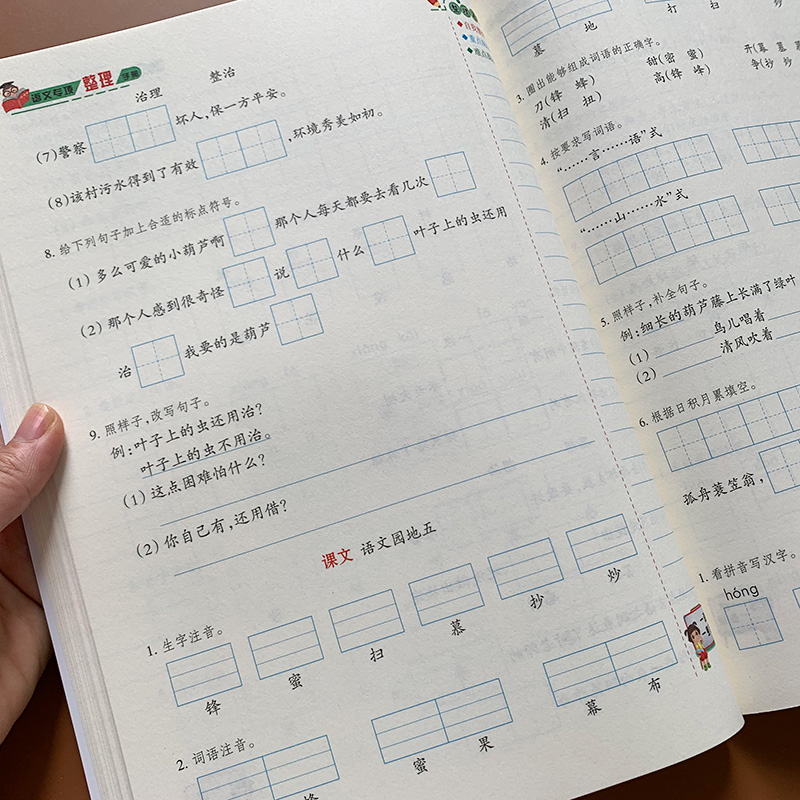 语文专项 整理 手册
治理 整治
(7)警察 坏人,保一方平安。
(8)该村污水得到了有效 ,环境秀美如初。
8. 给下列句子加上合适的标点符号。
(1) 多么可爱的小葫芦啊 那个人每天都要去看几次
(2) 那个人感到很奇怪 说 什么 叶子上的虫还用
治 我要的是葫芦
9. 照样子,改写句子。
例:叶子上的虫还用治?
叶子上的虫不用治。
(1) 这点困难怕什么?
(2) 你自己有,还用借?
课文 语文园地五
1. 生字注音。
锋 蜜 扫 慕 抄 炒
2. 词语注音。
蜜 果 幕 布
墓 地 打 扫
3. 圈出能够组成词语的正确字。
刀(锋 蜂) 甜(密 蜜)
清(扫 扭) 高(锋 峰)
4. 按要求写词语。
“……言……语”式
“……山……水”式
5. 照样子,补全句子。
例:细长的葫芦藤上长满了绿叶
(1) 鸟儿唱着
(2) 清风吹着
6. 根据日积月累填空。
孤舟蓑笠翁,
1. 看拼音写汉字。
hóng